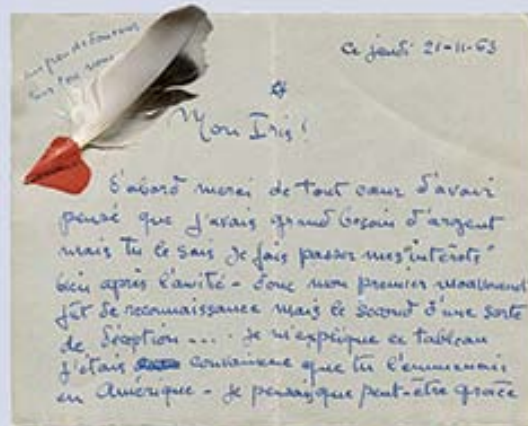 un peu de douceur
sur ton
ce jeudi 21-11-63
Mon Iris!
D'abord merci de tout cœur d'avoir
pensé que j'avais grand besoin d'argent
mais tu le sais je fais passer mes "intérêts"
bien après l'amitié - donc mon premier mouvement
fût de reconnaissance mais le second d'une sorte
de déception.... je m'explique ce tableau
j'étais convaincue que tu l'emmenais
en Amérique - je pensais que peut-être grâce